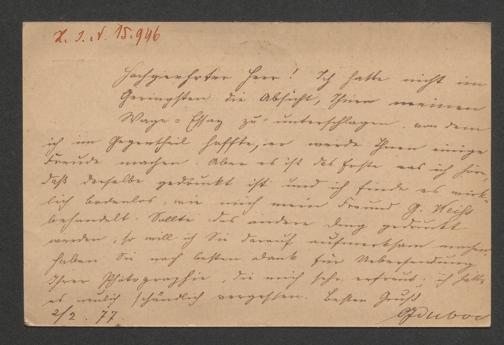 H. I. N. 15.946
Hochgeehrter Herr! Ich hatte nicht im
Geringsten die Absicht, Ihnen meinen
Wage-Essay zu unterschlagen, von dem
ich im Gegentheil hoffte, er werde Ihnen einige
Freude machen. Aber es ist das Erste was ich höre,
daß derselbe gedruckt ist und ich finde es wirk-
lich bodenlos, wie mich mein Freund G. Heiß
behandelt. Sollte das andere Ding gedruckt
werden, so will ich Sie darauf aufmerksam machen.
Haben Sie noch besten Dank für Uebersendung
Ihrer Photographie, die mich sehr erfreut; ich hatte
es neulich schändlich vergessen. Besten Gruß
2/2. 77. Duboc